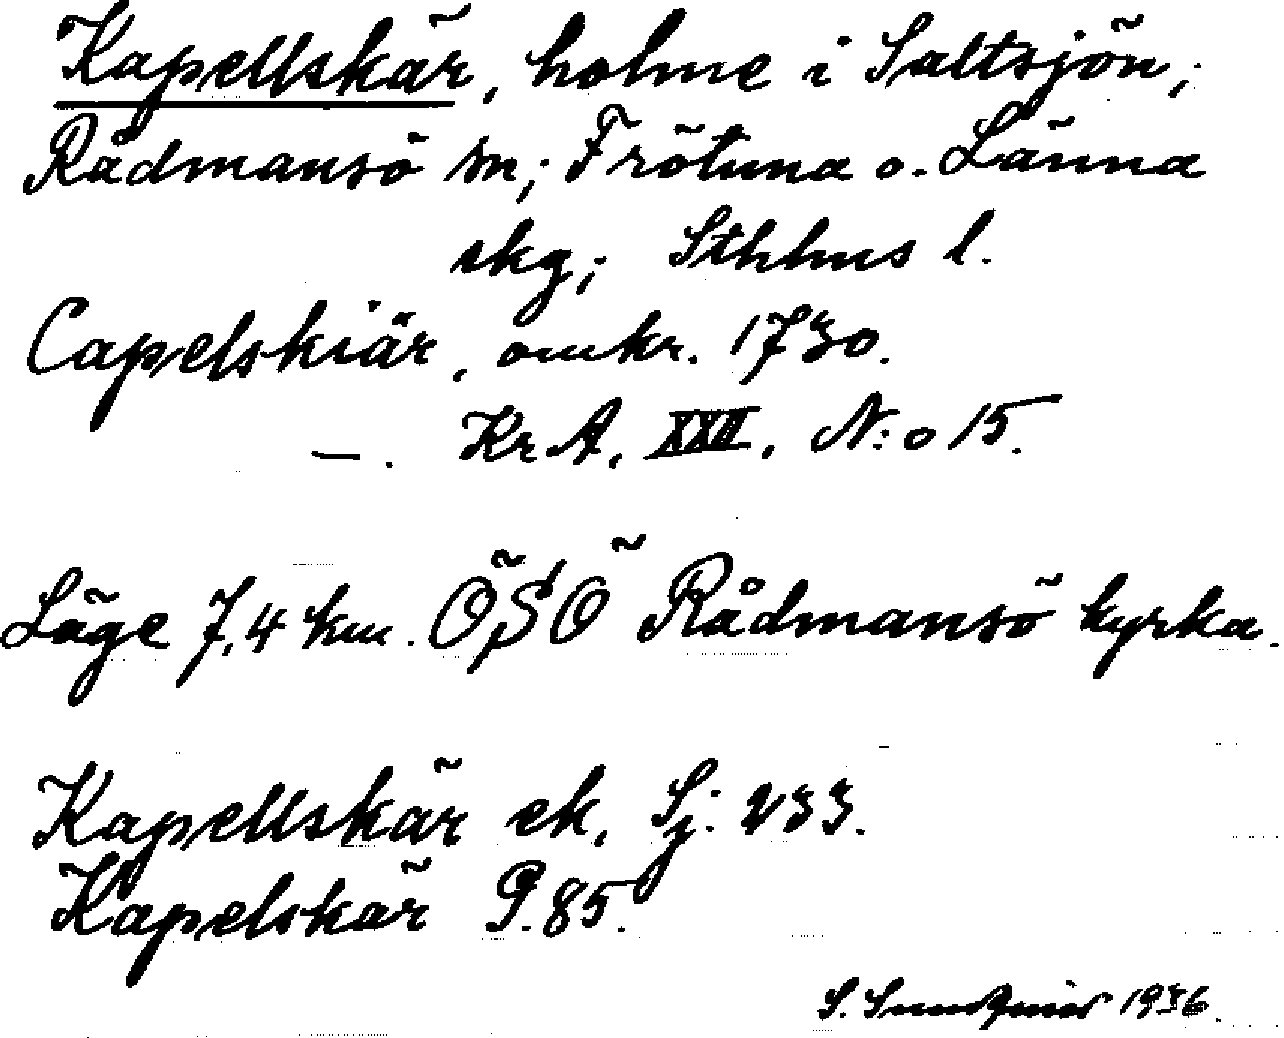 Kapellskär, holme i Saltsjön;
Rådmansö sn; Frötuna o. Länna
skg; Sthlms l.
Capelskiär, omkr. 1730.
—. KrA, XXII, N:o 15.
Läge 7,4 km. ÖSÖ Rådmansö kyrka.
Kapellskär ek. Sj: 233.
Kapelskär P. 85.
S. 1936.